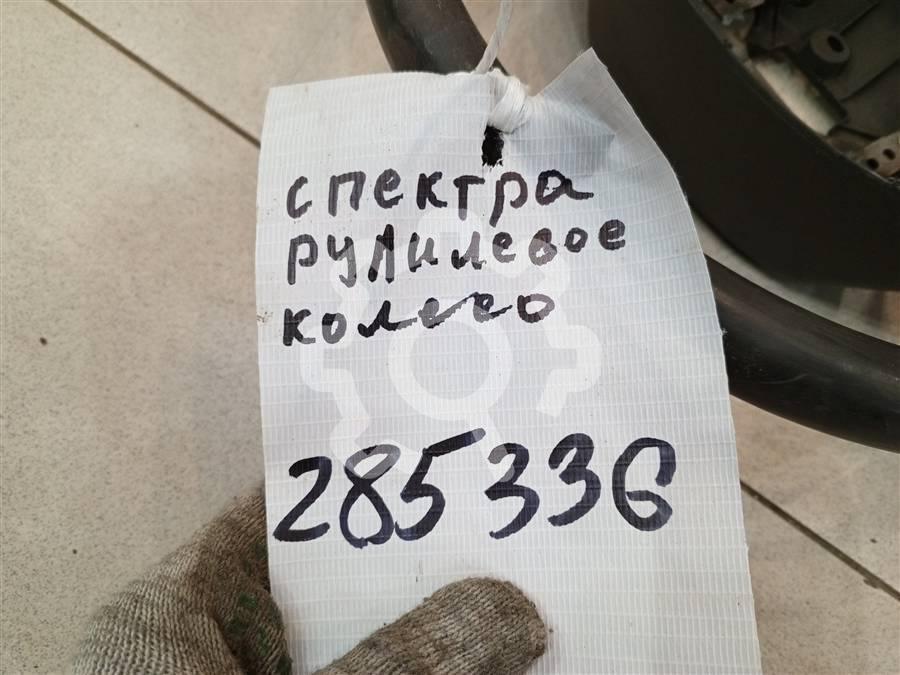 спектра
рулилевое
колесо
285336